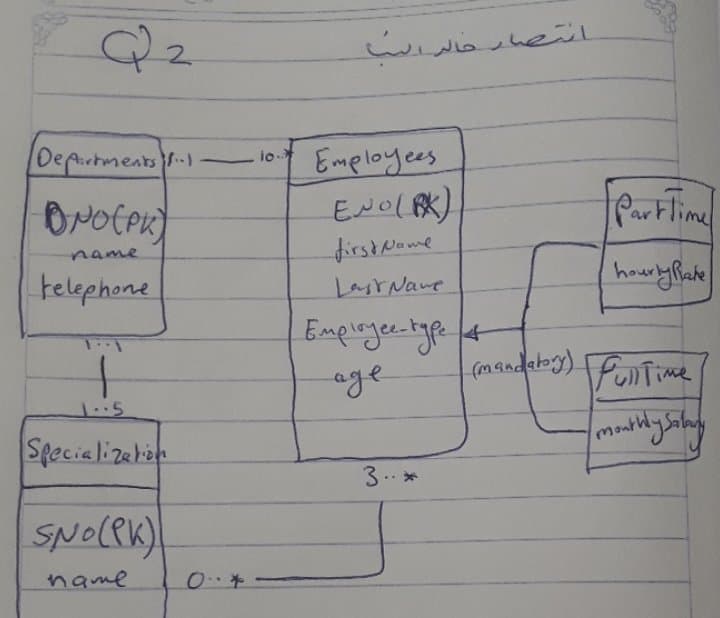 Q2
انتصار خالد
Departments
1..1
10..*
Employees
DNO(PK)
name
telephone
ENO(PK)
firstName
LastName
Employee-type
age
PartTime
hourlyRate
(mandatory)
FullTime
monthlySalary
1..1
1..5
Specialization
SNO(PK)
name
3..*
0..*